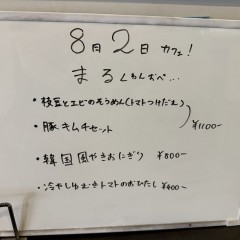 8月2日 カフェ!
まるくもんおべ...
・枝豆とエビのそうめん(トマトつけだれ)
・豚キムチセット
¥1100-
・韓国風やきおにぎり ¥800-
・冷やしゆむきトマトのおひたし ¥400-